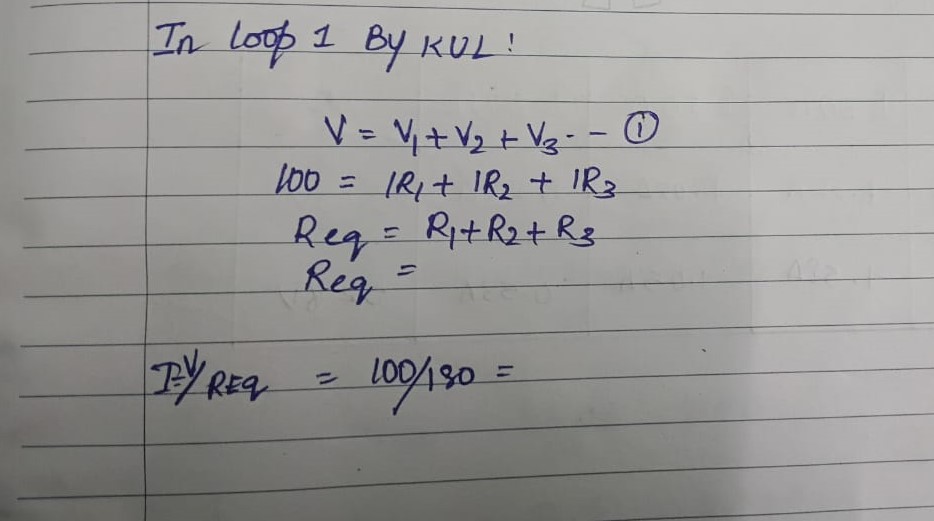 In loop 1 By KVL:
V = V₁ + V₂ + V₃ - - ①
100 = IR₁ + IR₂ + IR₃
Req = R₁ + R₂ + R₃
Req =
I=V/REq = 100/180 =